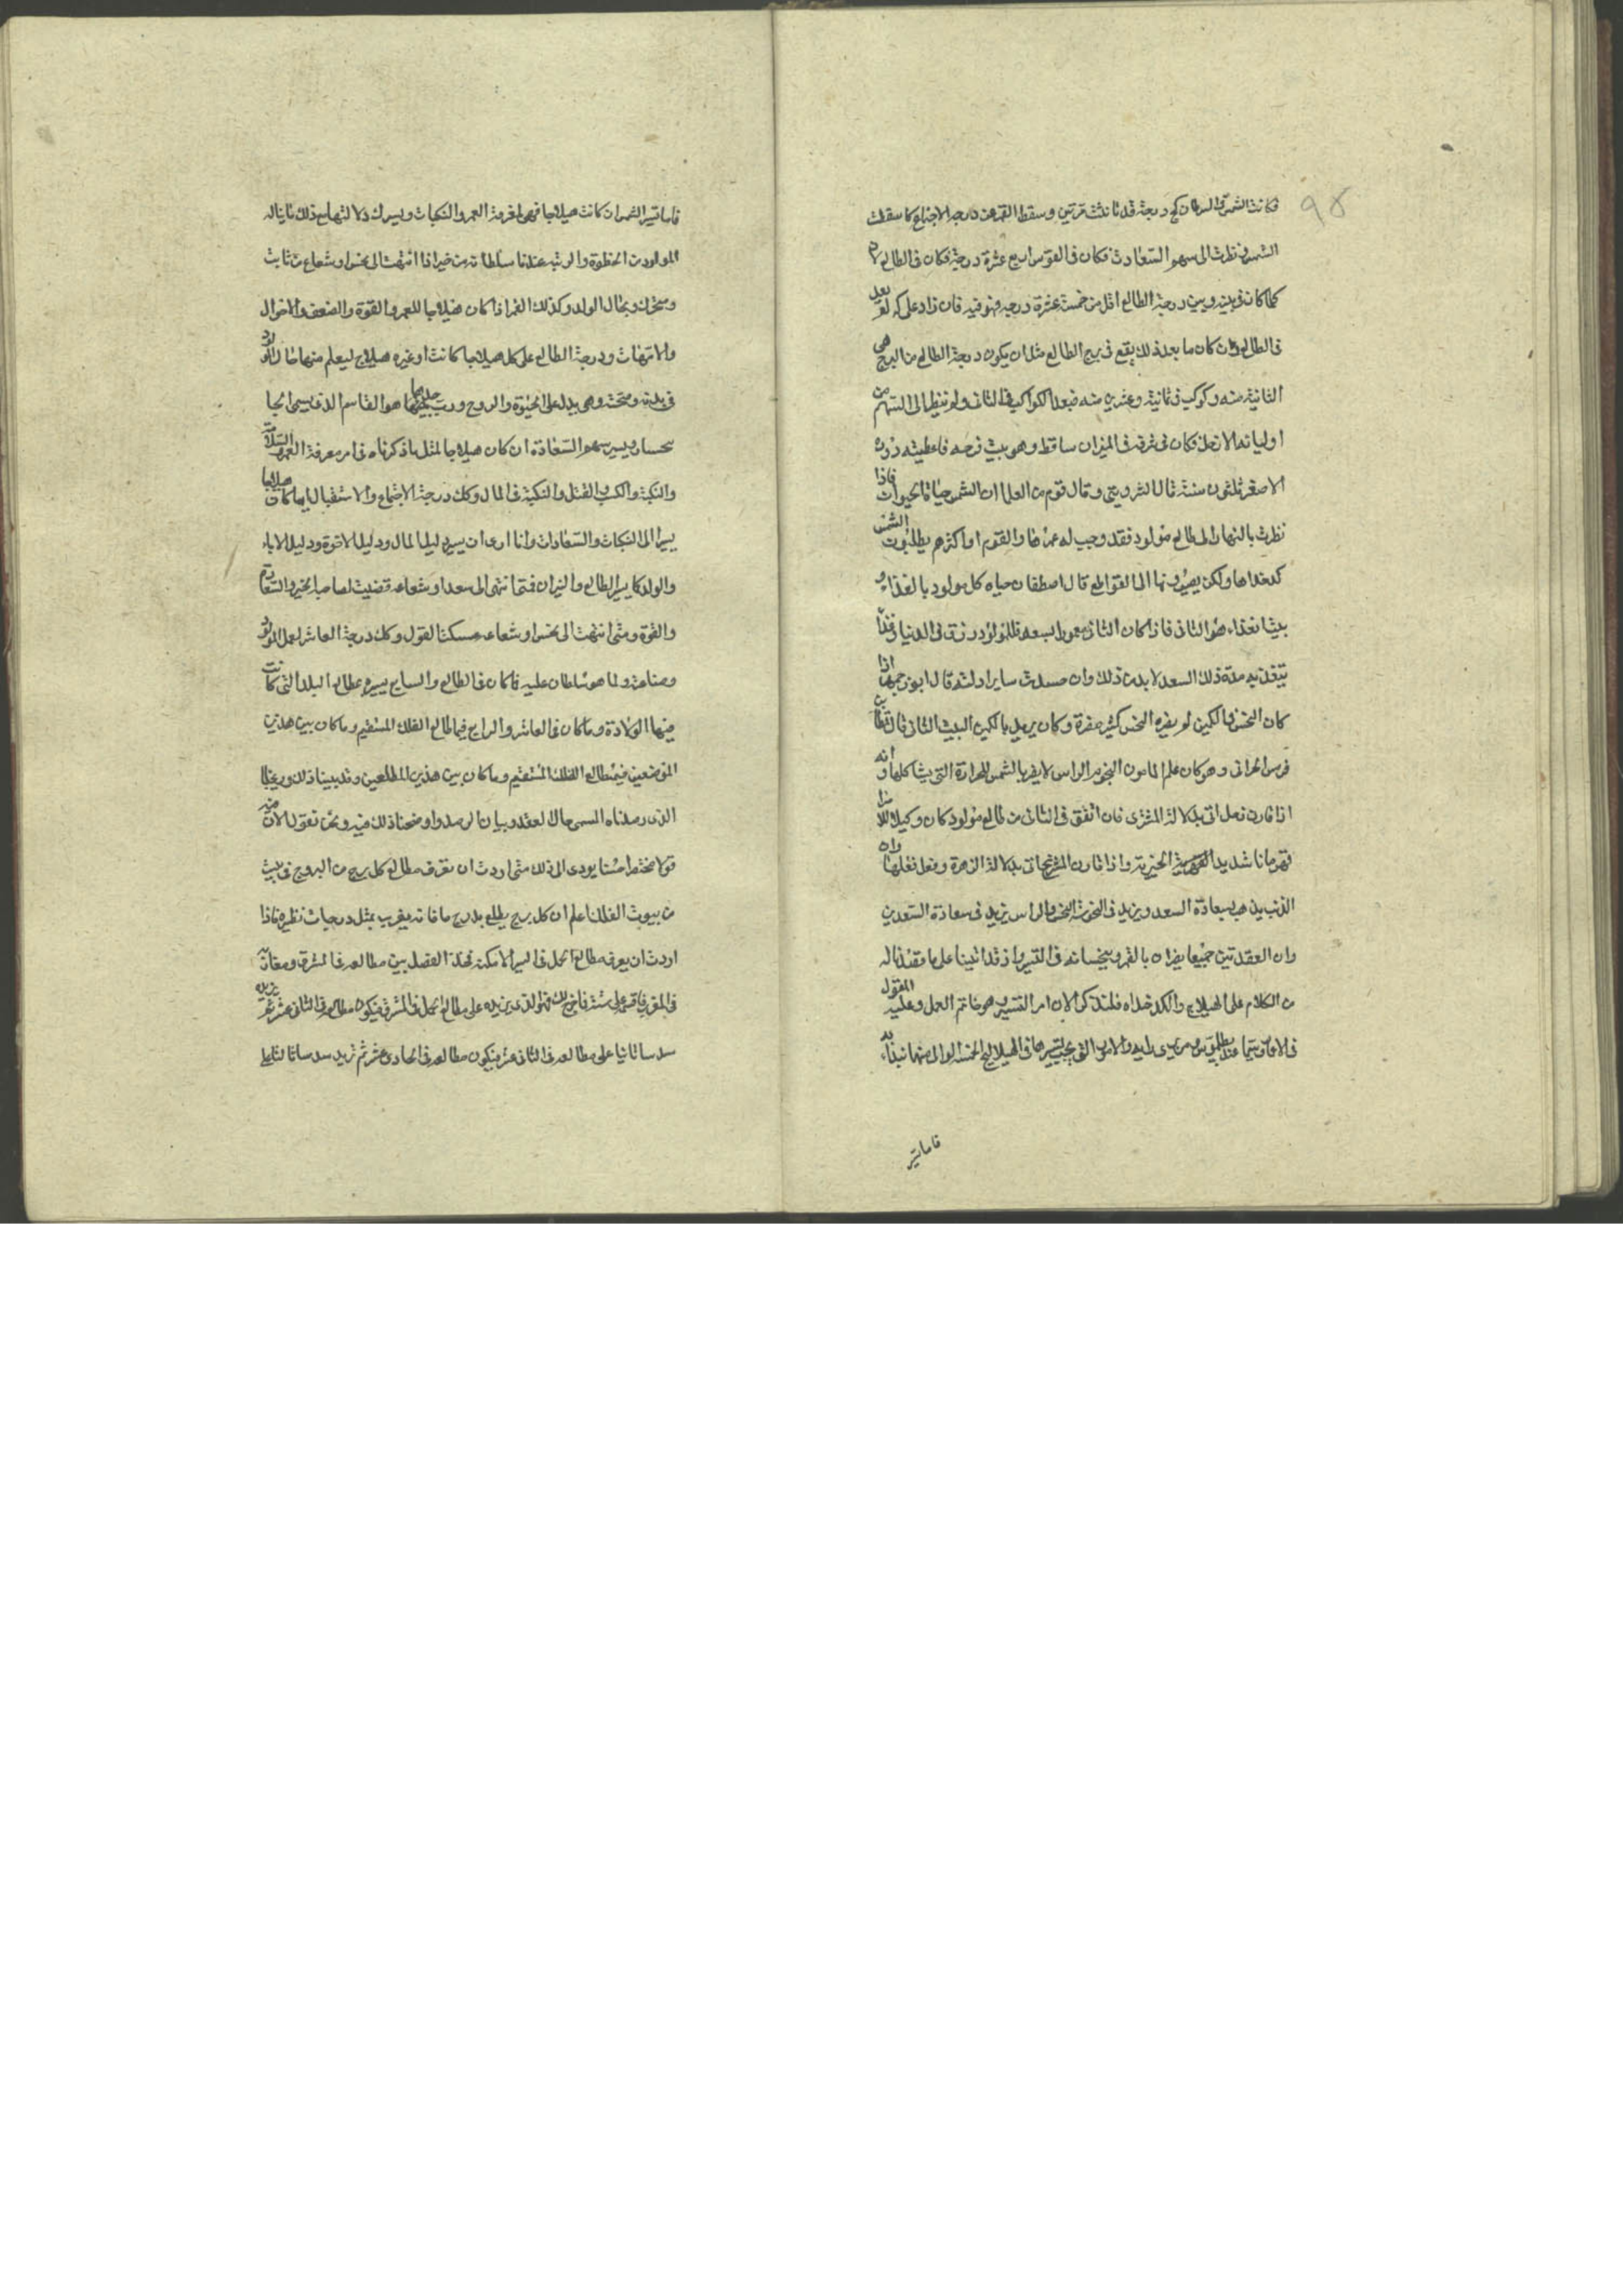 ٩٥
فكانت الشمس في السرطان كح درجة قد ثانثت مرتين وسقط القمر عن درجة الاجتماع كما سقطت
الشمس فنظرت الى سهم السعادت فكان في القوس اربع عشرة درجة فكان في الطالع لانه
كلما كان بينه وبين درجة الطالع اقل من خمسة عشرة درجة فهو فيه فان زاد على كه لم بعد
في الطالع وان كان ما بعد ذلك يقع في برج الطالع مثل ان يكون درجة الطالع من البرج هي
الثانية منه وكوكب في ثمانية وعشرين منه فبعد الكواكب في الثاني ولم ينظر الى السهم من
اوليائه الا زحل فكان في شرفه في الميزان ساقط وهو بيت فرحه فاعطيته دوره
الاصغر ثلثون سنة قال النيروزي وقال قوم من العلما ان الشمس حياة الحيوان فاذا
نظرت بالنهار الى طالع مولود فقد وجب له عمرها والقوم او اكثرهم يطلبون الشمس
كدخداها ولكن يصيرونها الى القواطع قال اصطفان حياه كل مولود بالغذاء و
بيت الغذاء هو الثاني فاذا كان الثاني معمورا بسعد فللمولود رزق في الدنيا وغذا
يتغذى به مدة ذلك السعد لا بد من ذلك وان فسدت ساير ادلته قال ابو زجمهر اذا
كان النحس في الكمين لم يضره النحس كثير مضرة وكان يريد بالكمين البيت الثاني قال ثابت
قرس الحراني وهو كان علم المامون النجوم الراس لا يضر بالشمس للحرارة التي بشاكلها وانه
اذا قارن زحل اتى بدلالة المشتري فان اتفق في الثاني من طالع مولود كان وكيلا
قهرمانا شديد القهرمة الخيرية واذا قارن المريخ اتى بدلالة الزهرة وفعل فعلها وان
الذنب يذهب بسعادة السعد ويزيد في النحوسة النحس والراس يزيد في سعادة السعدين
وان العقدتين جميعا يضران بالقمر وينحسانه في التسيير واذ قد اتينا على ما قصدنا له
من الكلام على الهيلاج والكدخداه فلنذكر الان امر التسيير وهو خاتم العمل وعليه المعول
في الاوقات سيما عند بطلميوس ومن يرى رايه والامور التي يجب تسييرها في الهيلاج الخمسة اوالى منها نبدا به
فاما تسيير
فاما تسيير الشمس ان كانت هيلاجا فهي لمعرفة العمر والنكبات ويسير لك دلالتها مع ذلك ما يناله
المولود من الحظوة والرتبه عند السلطان من خير اذا انتهت الى نحس او شعاع من ثابت
وسخرك وبحال الولد وكذلك القمر اذا كان هيلاجا للعمر والقوة والضعف والاحوال
والامتهات ودرجة الطالع على كل هيلاجا كانت او غيره هيلاج ليعلم منها حال المولود
في بدنه وصحته وهي يدل على الحيوة والروح ورب حدها هو القاسم الذي يسمى الجا
بختار ويسير سهم السعادة ان كان هيلاجا لمثل ما ذكرناه في امر معرفة العمر السلامة
والنكبة والكسب والقتل والنكبة في المال وكل درجة الاجتماع والاستقبال ايهما كان هيلاجا
يسير الى النكبات والسعادات وانا ارى ان يسير دليل المال ودليل الاخوة ودليل الاباء
والولد كما يسير الطالع والنيران فمتى انتهى الى سعد او شعاعه قضيت لصاحبه الخير والسعادة
والقوة ومتى انتهت الى نحس او شعاعه عسكت القول وكل درجة العاشر لعمل المولود
وصناعته ولما هو سلطان عليه فما كان في الطالع والسابع يسيره بمطالع البلد التي كانت
فيها الولادة وما كان في العاشر والرابع فبمطالع الفلك المستقيم وما كان بين هذين
الموضعين فبمطالع الفلك المستقيم وما كان بين هذين المطلعين وقد بينا ذلك وريحنا
الذي رصدناه المسمى حال العقد وبيان الرصد واوضحنا ذلك فيه ونحن نقول الان فيه
قولا مختصرا حسنا يودى الى ذلك متى اردت ان تعرف مطالع كل برج من البروج في بيت
من بيوت الفلك اعلم ان كل برج يطلع بدرج ما فانه يغرب بمثل درجات نظيره فاذا
اردت ان يعرف مطالع الحمل في السير الامكنة فخذ الفضل بين مطالعه في المشرق ومغاربه
في المغرب فاقسمه على ستة فما خرج لك فهو الذي يزيده على مطالع الحمل في المشرق فيكون مطالعه في الثاني عشر ثم يزيد
سدسا ثانيا على مطالعه في الثاني عشر فيكون مطالعه في الحادي عشر ثم تزيد سدسا ثالثا على